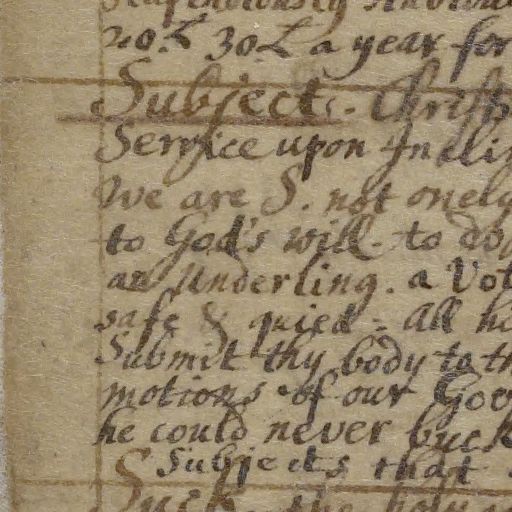 20.£ 30.£ a year for
Subject. Christs
Service upon Inclin
We are S. not onely
to God's will. to do
an Underling. a Vot
safe & quied = all hi
Submit thy body to th
motions of our Gov
he could never buck
Subjects that
Such the holy